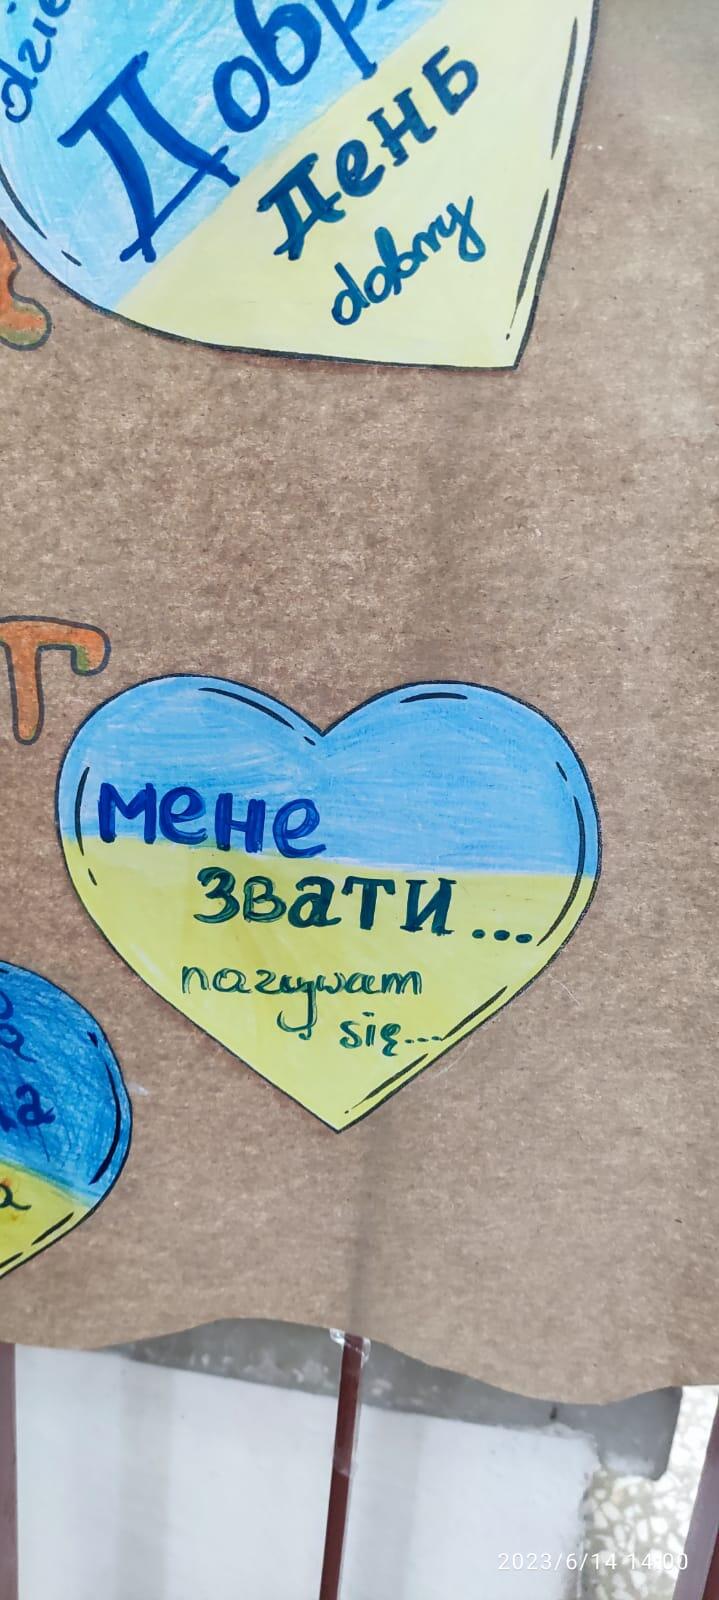 День
dobry
Т
мене
звати...
nazywam
się...
2023/6/14 14:00